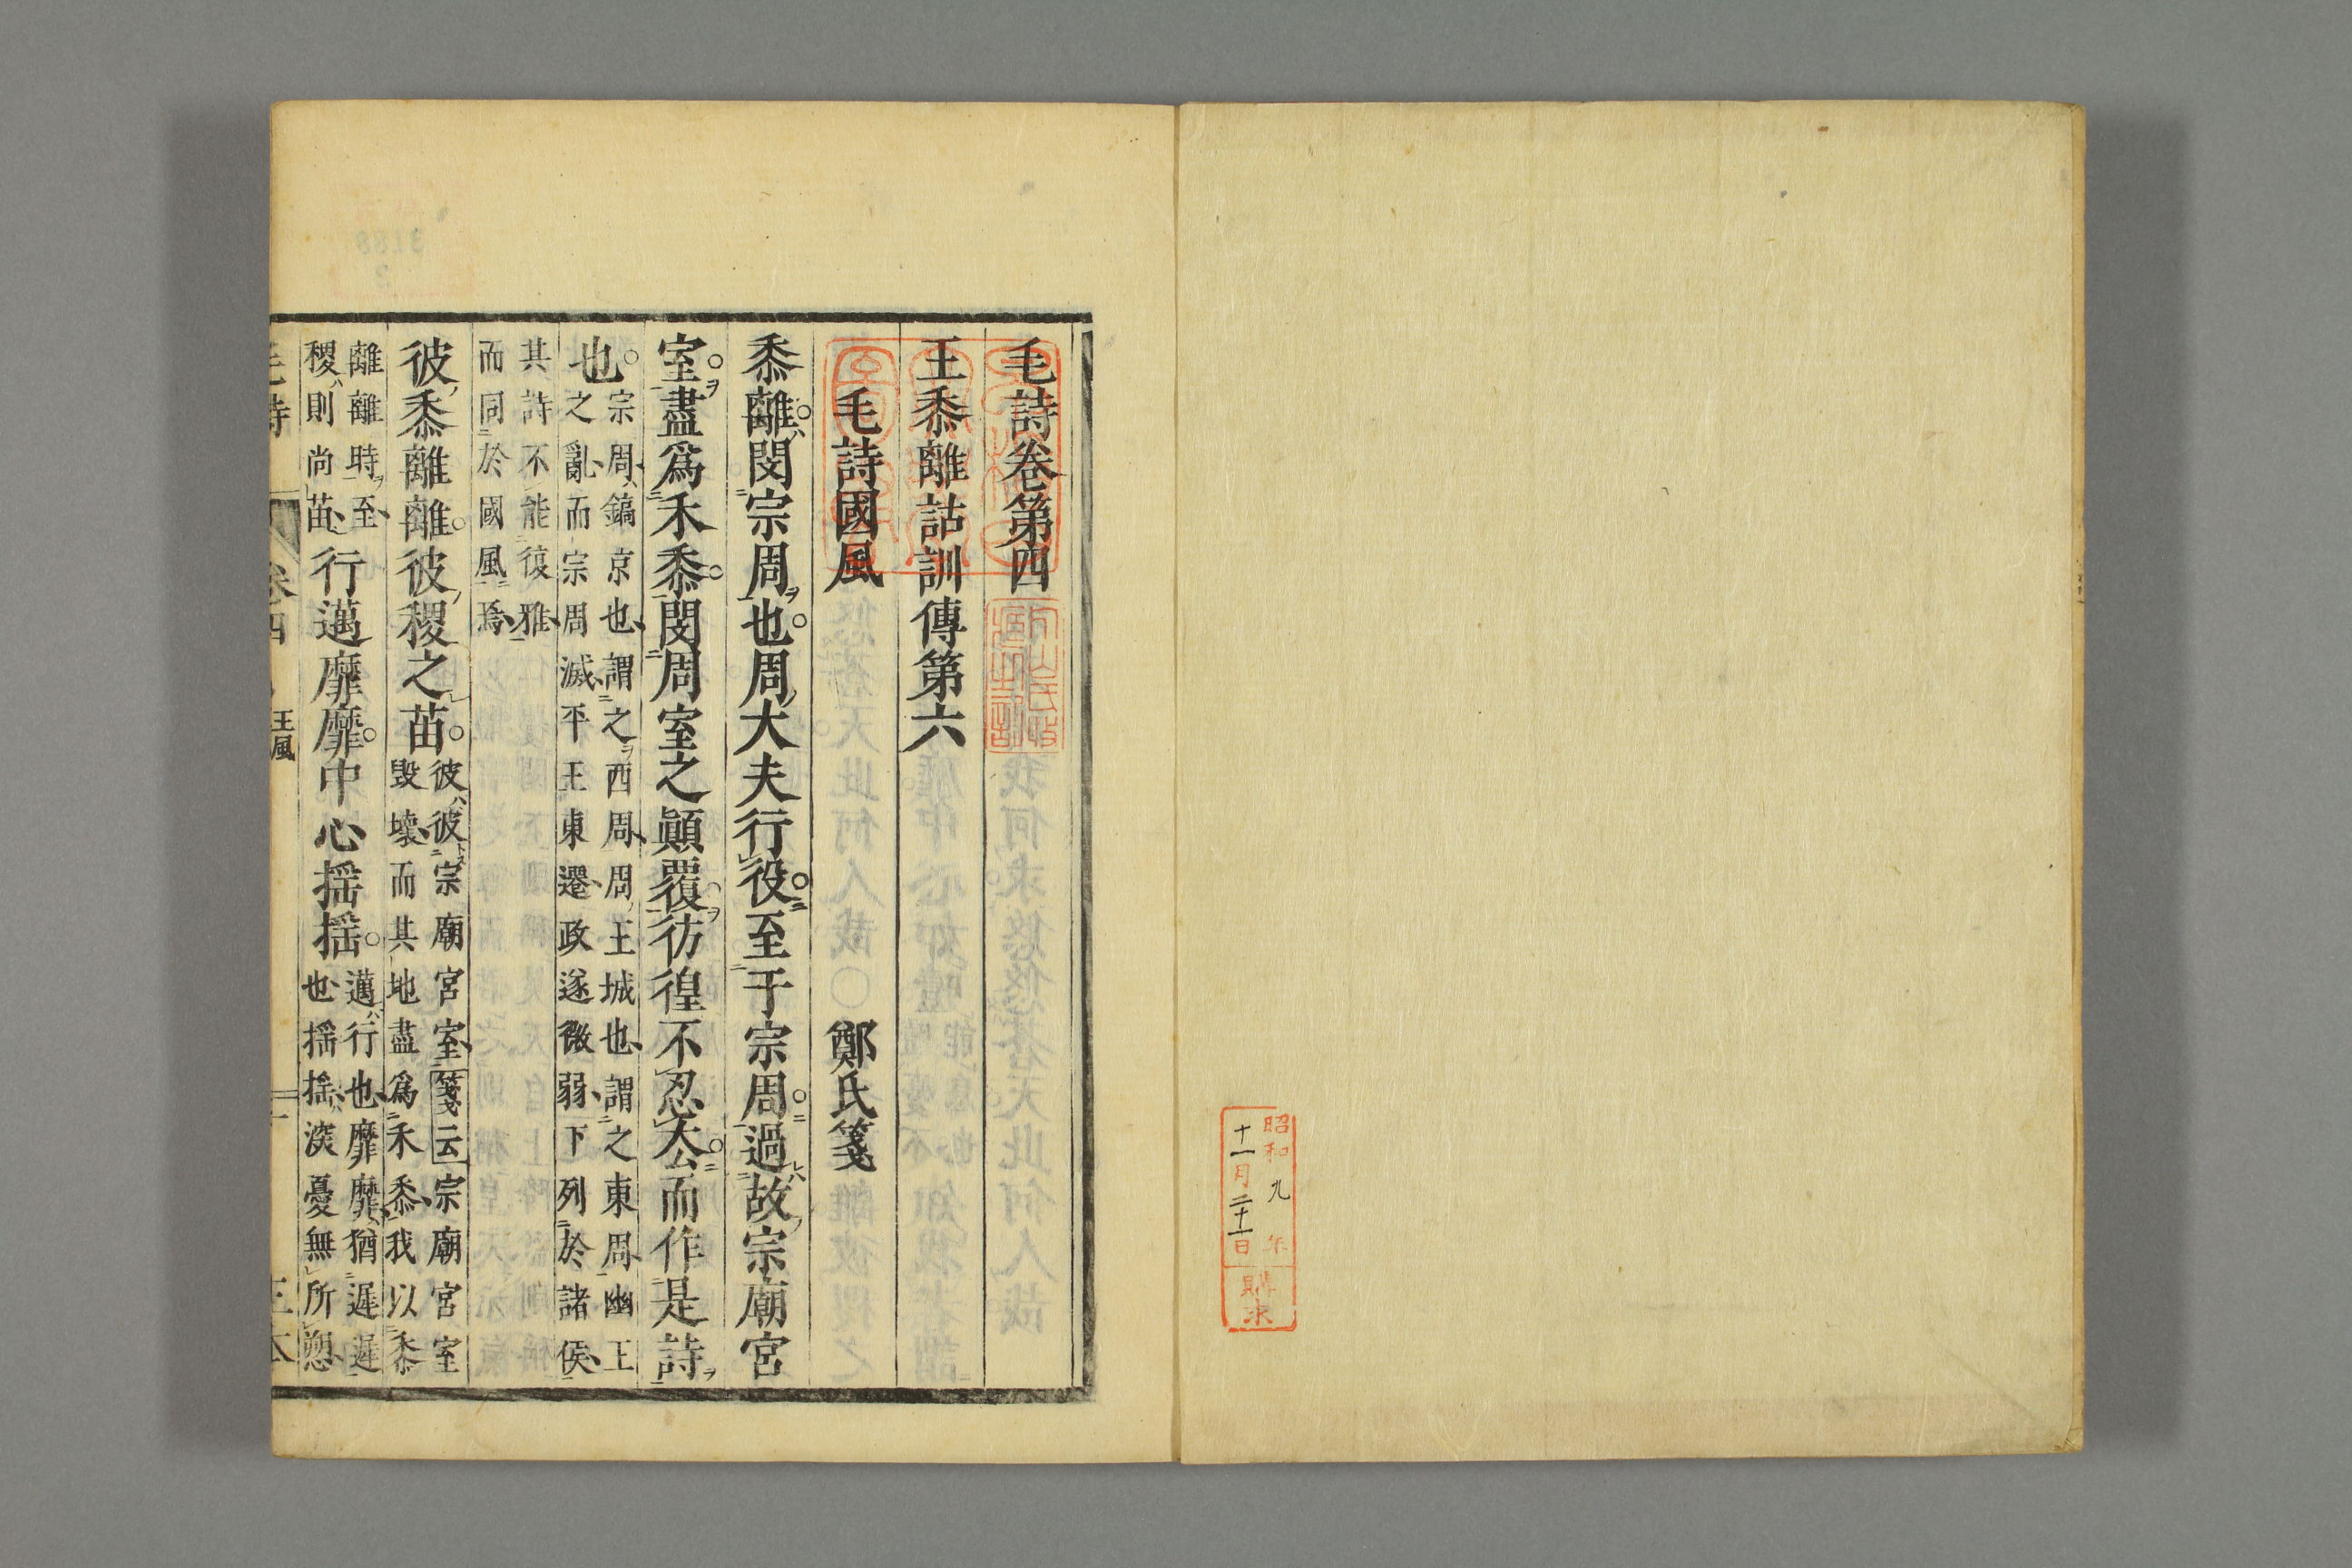 昭和九年
十一月二十一日
購求
毛詩卷第四
王黍離詁訓傳第六
毛詩國風 鄭氏箋
黍離閔宗周也周大夫行役至于宗周過故宗廟宮
室盡爲禾黍閔周室之顚覆彷徨不忍去而作是詩
也宗周鎬京也謂之西周周王城也謂之東周幽王
之亂而宗周滅平王東遷政遂微弱下列於諸侯
其詩不能復雅
而同於國風焉
彼黍離離彼稷之苗彼彼宗廟宮室箋云宗廟宮室
毀壞而其地盡爲禾黍我以黍
離離時至
稷則尚苗行邁靡靡中心揺揺邁行也靡靡猶遲遲
也揺揺㴱憂無所愬
毛詩 卷四 王風